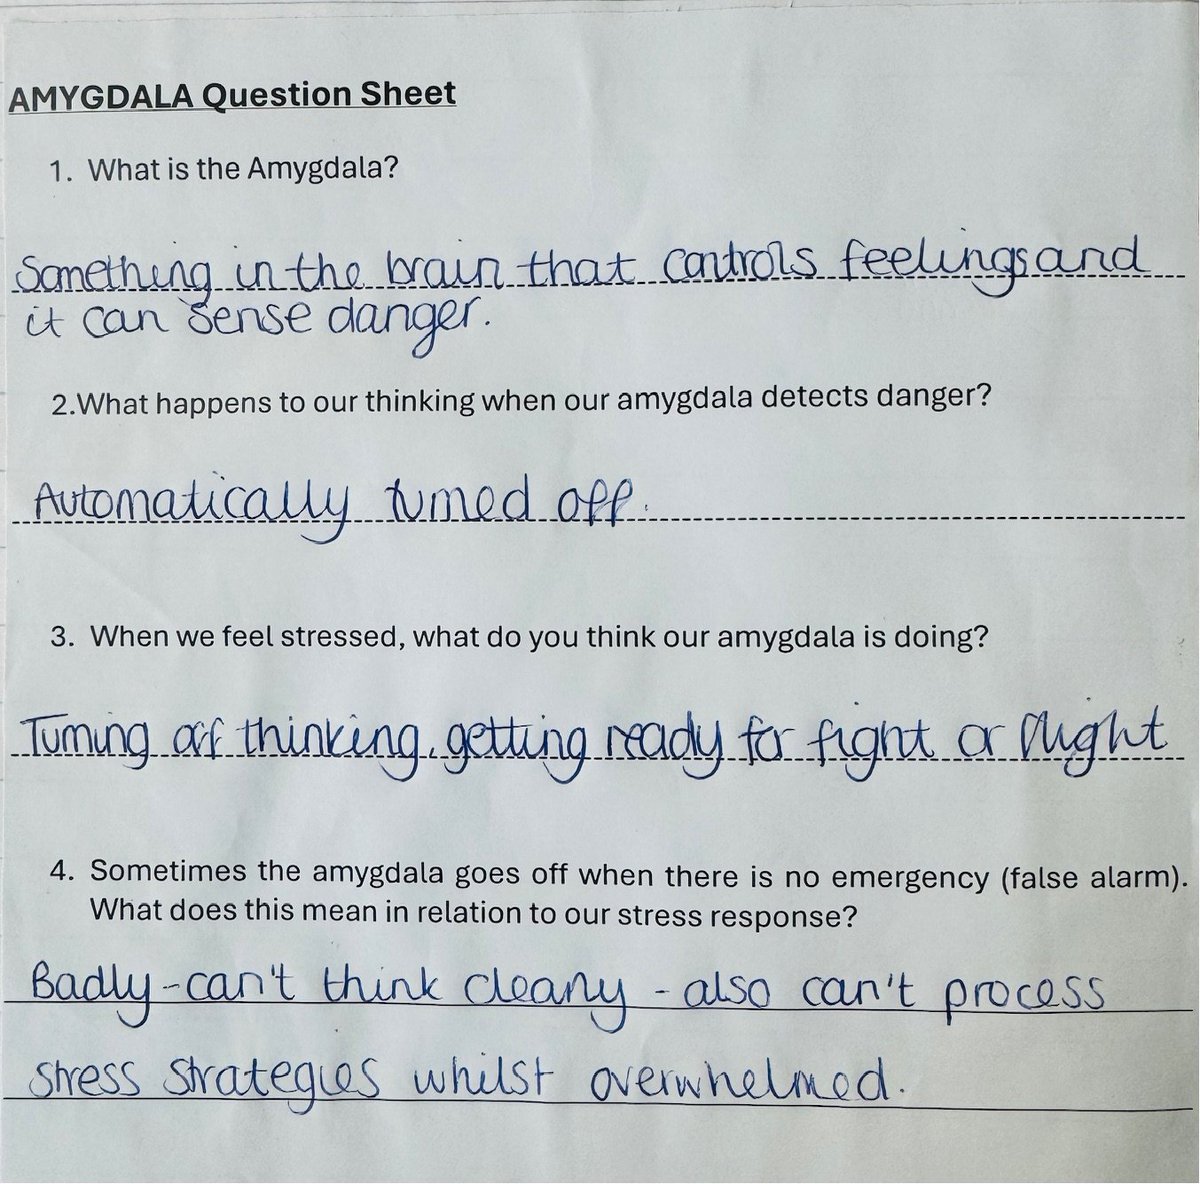 AMYGDALA Question Sheet
1. What is the Amygdala?
Something in the brain that controls feelings and
it can sense danger.
2.What happens to our thinking when our amygdala detects danger?
Automatically turned off.
3. When we feel stressed, what do you think our amygdala is doing?
Turning off thinking, getting ready for fight or flight
4. Sometimes the amygdala goes off when there is no emergency (false alarm).
What does this mean in relation to our stress response?
Badly - can't think clearly - also can't process
stress strategies whilst overwhelmed.